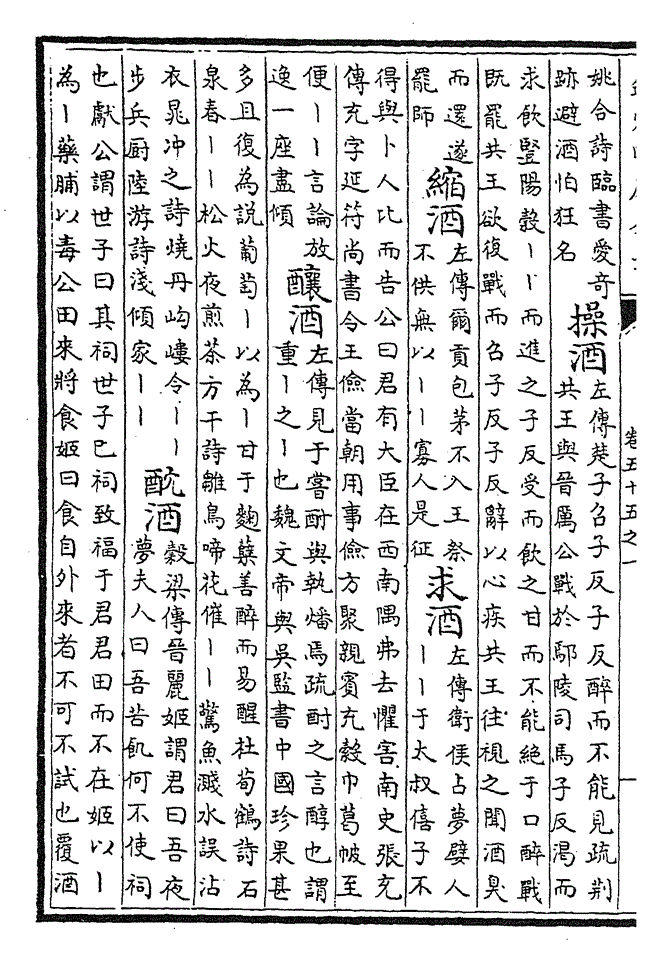 卷五十五之一
一
姚合詩臨書愛奇
跡避酒怕狂名
操酒
左傳楚子召子反子反醉而不能見疏荆
共王與晉厲公戰於鄢陵司馬子反渴而
求飲豎陽穀丨丨而進之子反受而飲之甘而不能絶于口醉戰
既罷共王欲復戰而召子反子反辭以心疾共王往視之聞酒臭
而還遂
罷師
縮酒
左傳爾貢包茅不入王祭
不供無以丨丨寡人是征
求酒
左傳衛侯占夢嬖人
丨丨于太叔僖子不
得與卜人比而告公曰君有大臣在西南隅弗去懼害南史張充
傳充字延符尚書令王儉當朝用事儉方聚親賓充縠巾葛帔至
便丨丨言論放
逸一座盡傾
釀酒
左傳見于嘗酎與執燔焉疏酎之言醇也謂
重丨之丨也魏文帝與吳監書中國珍果甚
多且復為說葡萄丨以為丨甘于麴蘖善醉而易醒杜荀鶴詩石
泉春丨丨松火夜煎茶方干詩雛鳥啼花催丨丨驚魚濺水誤沾
衣晁冲之詩燒丹岣嶁令丨丨
步兵厨陸游詩淺傾家丨丨
酖酒
穀梁傳晉麗姬謂君曰吾夜
夢夫人曰吾苦飢何不使祠
也獻公謂世子曰其祠世子已祠致福于君君田而不在姬以丨
為丨藥脯以毒公田來將食姬曰食自外來者不可不試也覆酒